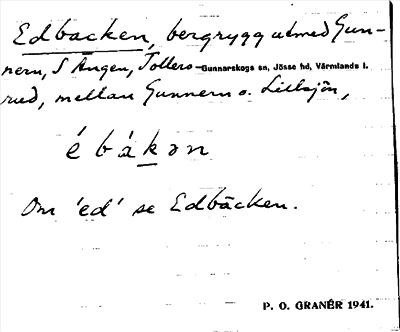 Edbacken, bergrygg utmed Gun-
nern, S Ängen, Tollers-
Gunnarskogs sn, Jösse hd, Värmlands l.
rud, mellan Gunnern o. Lillsjön,
é b á k ə n
Om 'ed' se Edbäcken.
P. O. GRANÉR 1941.